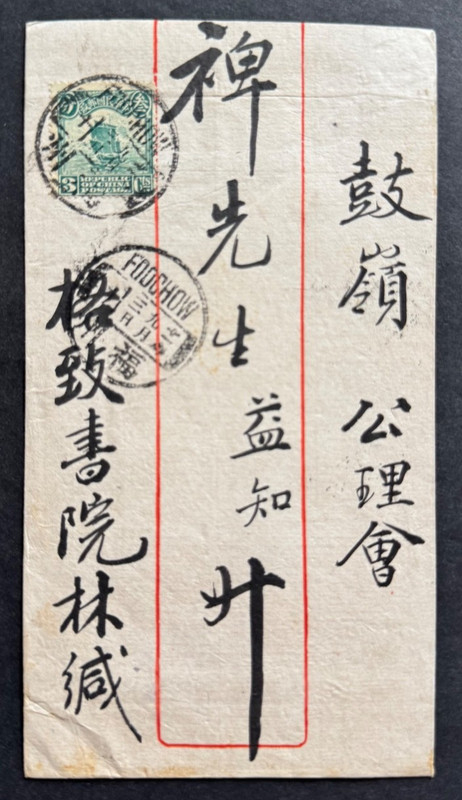 鼓嶺 公理會
裨先生益知 升
格致書院林緘
3 Cts
REPUBLIC
OF CHINA
POSTAGE
FOOCHOW
FOOCHOW
福